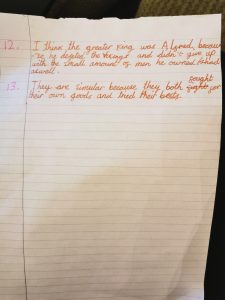 12. I think the greater king was Alfred, becau
-se he defeted the vikings and didn't give up
with the small amount of men he owned behind
aswell.
13. They are simular because they both fought for
their own goods and tried their bests.